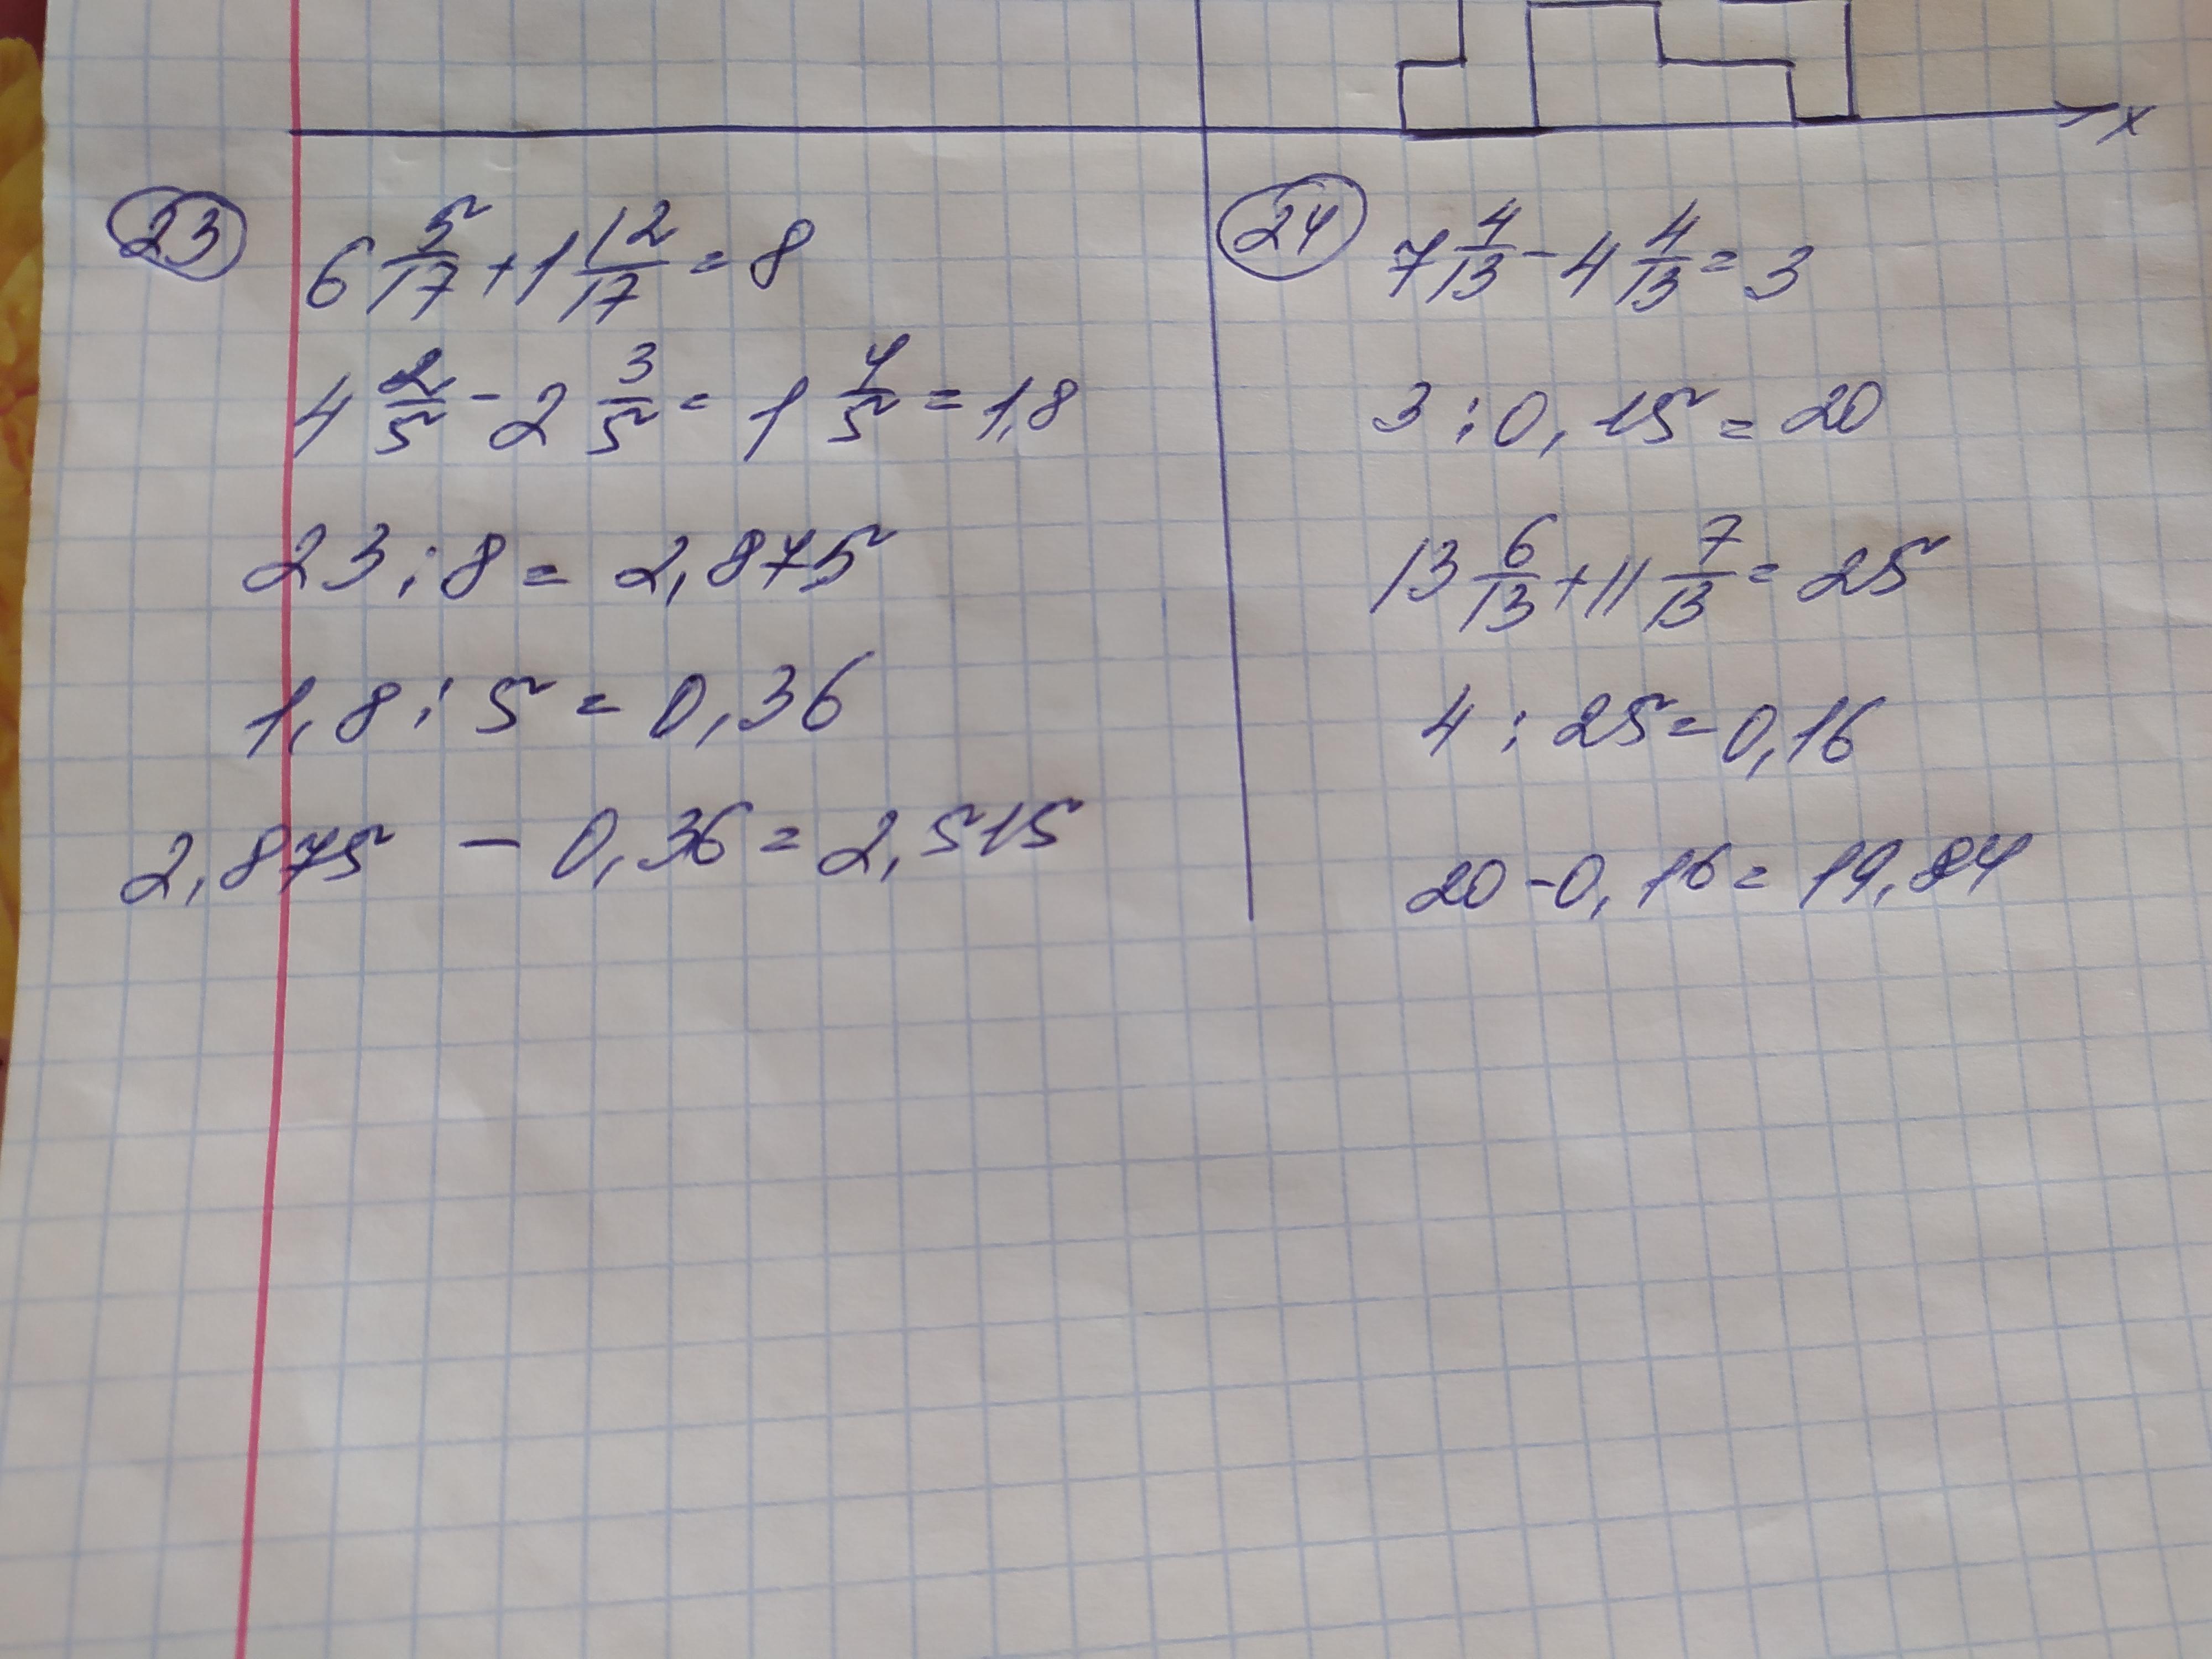 x
23
6 5/17 + 1 12/17 = 8
4 2/5 - 2 3/5 = 1 4/5 = 1,8
23 : 8 = 2,875
1,8 : 5 = 0,36
2,875 - 0,36 = 2,515
24
7 4/13 - 4 4/13 = 3
3 : 0,15 = 20
13 6/13 + 11 7/13 = 25
4 : 25 = 0,16
20 - 0,16 = 19,84